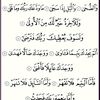 وَالضُّحَىٰ ۝ وَاللَّيْلِ إِذَا سَجَىٰ ۝ مَا وَدَّعَكَ رَبُّكَ وَمَا قَلَىٰ ۝
وَلَلْآخِرَةُ خَيْرٌ لَّكَ مِنَ الْأُولَىٰ ۝
وَلَسَوْفَ يُعْطِيكَ رَبُّكَ فَتَرْضَىٰ ۝
أَلَمْ يَجِدْكَ يَتِيمًا فَآوَىٰ ۝ وَوَجَدَكَ ضَالًّا فَهَدَىٰ ۝
وَوَجَدَكَ عَائِلًا فَأَغْنَىٰ ۝
فَأَمَّا الْيَتِيمَ فَلَا تَقْهَرْ ۝ وَأَمَّا السَّائِلَ فَلَا تَنْهَرْ ۝
وَأَمَّا بِنِعْمَةِ رَبِّكَ فَحَدِّثْ ۝